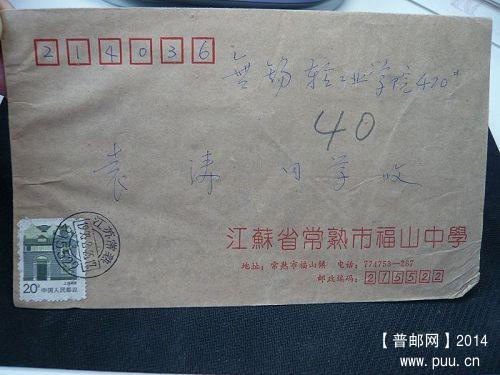 214036
无锡轻工业学院410#
40
袁涛同学收
江蘇省常熟市福山中學
地址:常熟市福山镇 电话:774753—267
邮政编码:215522
江苏常熟
20分 中国人民邮政
【普邮网】2014
www.puu.cn